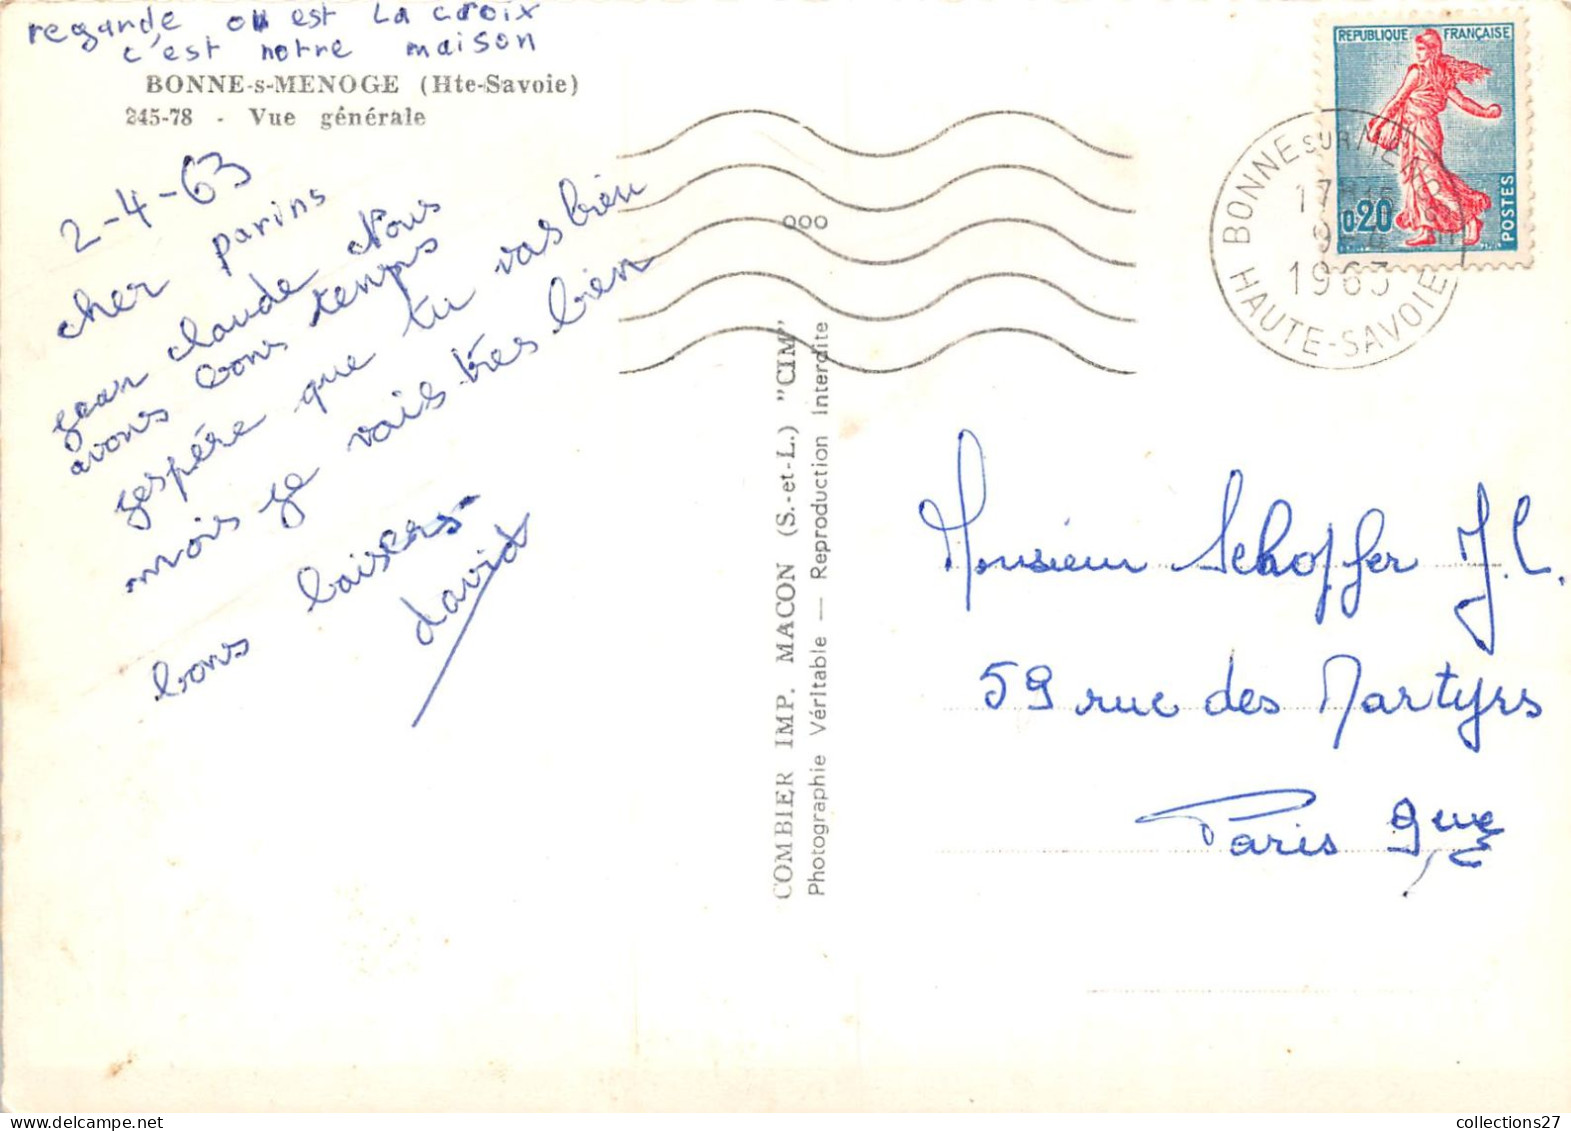 regande ou est la croix
c'est notre maison
BONNE-s-MENOGE (Hte-Savoie)
245-78 - Vue générale
2-4-63
cher parins
jean claude Nous
avons bons temps
jespére que tu vas bien
mois je vais très bien
bons baisers
david
COMBIER IMP. MACON (S.-et-L.) "CIM"
Photographie Véritable — Reproduction Interdite
REPUBLIQUE FRANÇAISE
0,20
POSTES
BONNE SUR MENOGE
17H15
9-4
1963
HAUTE-SAVOIE
Monsieur Schoffer J.C.
59 rue des Martyrs
Paris 9me
collections27